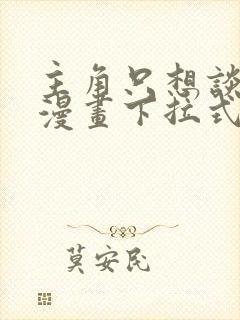 主角只想談
漫畫下拉式
莫安民